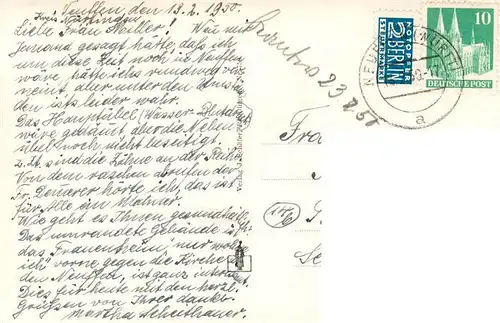 Neuffen den 13.2.1950.
Kreis Nürtingen
Liebe Frau Meller! Wen mir
Jemand gesagt hätte, daß ich
um diese Zeit noch in Neuffen
wäre, hätte ichs rundweg ver-
neint, aber unter den Umstän-
den ist leider wahr.
Das Hauptübel (Wasser-Blutdruck
wäre gebannt, aber die Neben-
übel noch nicht beseitigt.
z. Zt. sind die Zähne an der Reihe
Von dem raschen abrufen der
Fr. Demarer hörte ich, das ist
für Alle ein Mahner.
Wie geht es Ihnen gesundheitl.
Das umrandete Gebäude ist
das Frauenheim, wo
ich vorne gegen die Kirche
den Neuffen, ist ganz
Dies für heute mit den herzl.
Grüßen von Ihrer dankb.
Martha Scheithauer.
23 2 50
NOTOPFER
2 BERLIN
STEUERMARKE
10
DEUTSCHE POST
a
Fra
(14b)
G
Sc